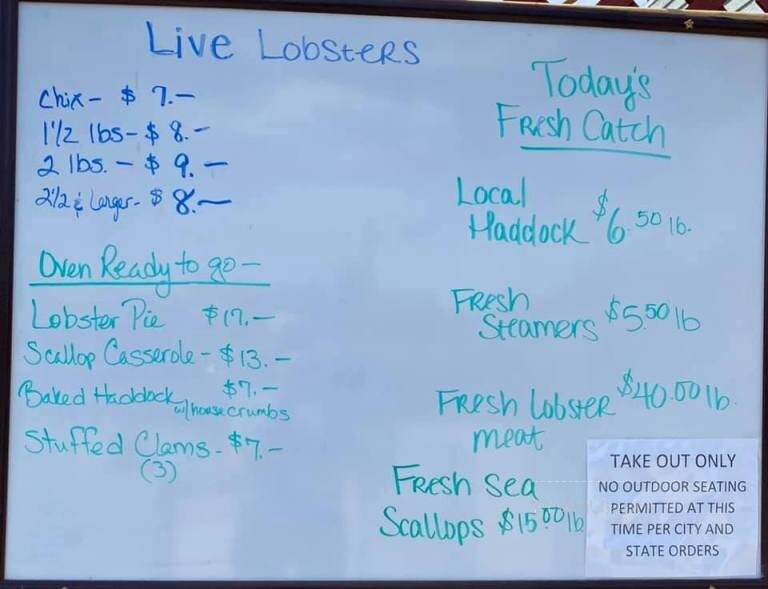 Live Lobsters
Chix - $ 7.-
1 1/2 lbs - $ 8.-
2 lbs. - $ 9.-
2 1/2 & Larger - $ 8.-
Oven Ready to go -
Lobster Pie $17.-
Scallop Casserole - $13.-
Baked Haddock $7.-
w/house crumbs
Stuffed Clams - $7.-
(3)
Today's
Fresh Catch
Local
Haddock $6.50 lb.
Fresh
Steamers $5.50 lb
Fresh Lobster $40.00 lb.
meat
Fresh Sea
Scallops $15.00 lb
TAKE OUT ONLY
NO OUTDOOR SEATING
PERMITTED AT THIS
TIME PER CITY AND
STATE ORDERS